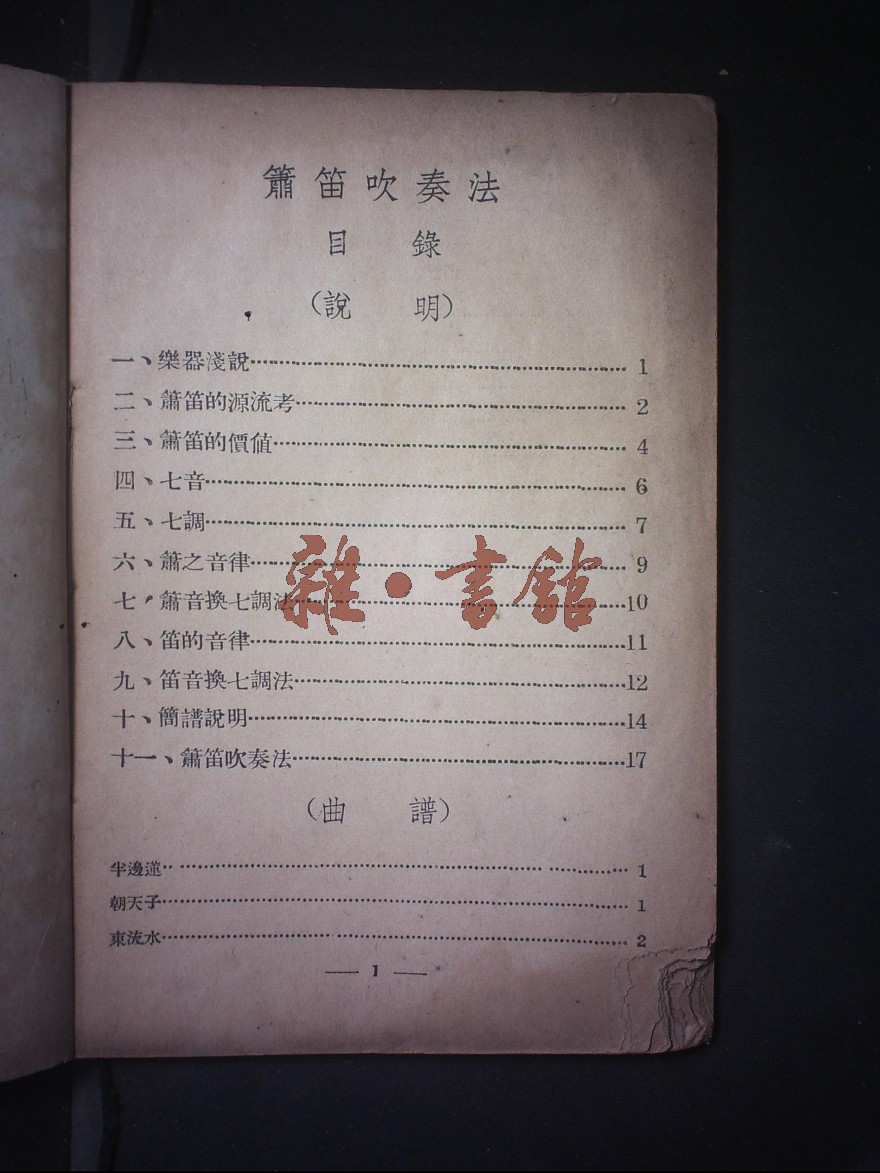 簫笛吹奏法
目錄
(說明)
一、樂器淺說 1
二、簫笛的源流考 2
三、簫笛的價值 4
四、七音 6
五、七調 7
六、簫之音律 9
七、簫音換七調法 10
八、笛的音律 11
九、笛音換七調法 12
十、簡譜說明 14
十一、簫笛吹奏法 17
(曲譜)
半邊蓮 1
朝天子 1
東流水 2
— 1 —
雜·書館